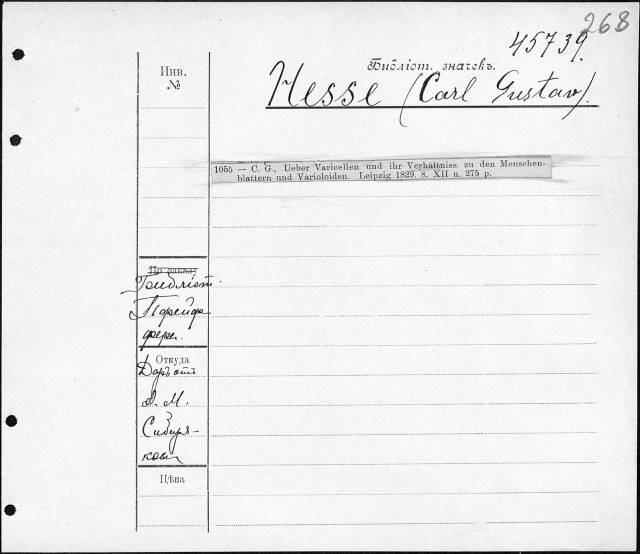 268
45739.
Библіот. значекъ.
Hesse (Carl Gustav).
Инв.
№
1055 — C. G., Ueber Varicellen und ihr Verhältniss zu den Menschen-
blattern und Varioloiden. Leipzig 1829. 8. XII u. 275 p.
Библіот.
Пфейф
фера.
Откуда
Даръ отъ
А. М.
Сибиря-
кова
Цѣна